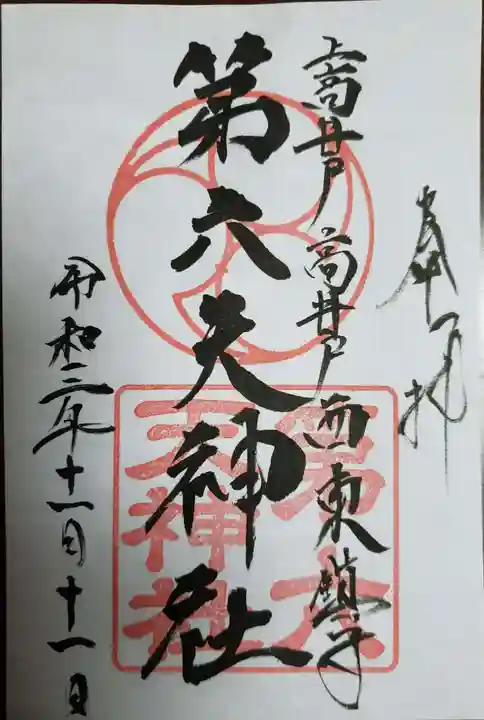 奉拝
上高井戸 高井戸西東鎮守
第六天神社
令和二年十一月十一日
第六
天神社